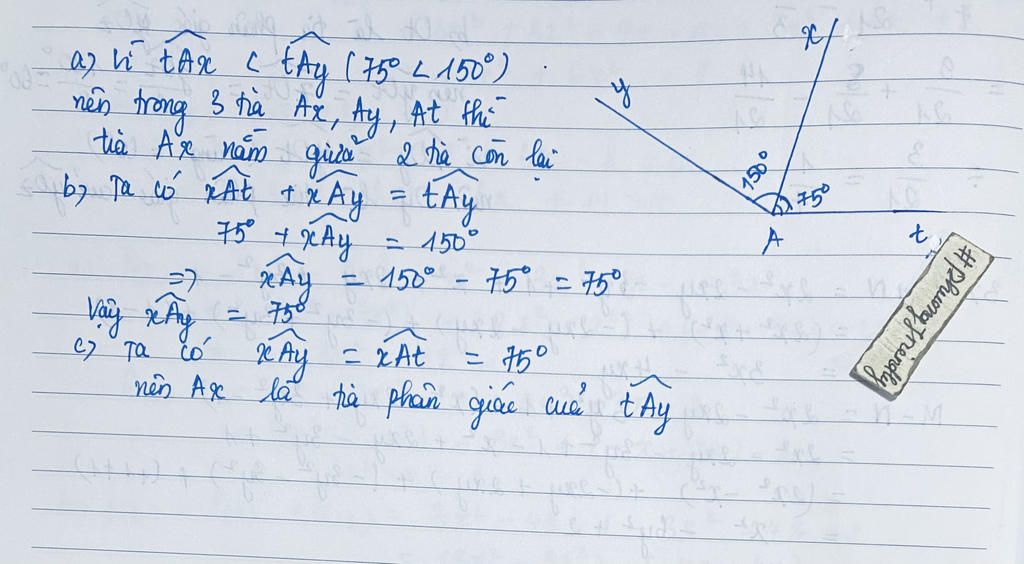 a) Vì tAx < tAy (75° < 150°)
nên trong 3 tia Ax, Ay, At thì
tia Ax nằm giữa 2 tia còn lại
b) Ta có xAt + xAy = tAy
75° + xAy = 150°
=> xAy = 150° - 75° = 75°
Vậy xAy = 75°
c) Ta có xAy = xAt = 75°
nên Ax là tia phân giác của tAy
x
y
150°
75°
A
t